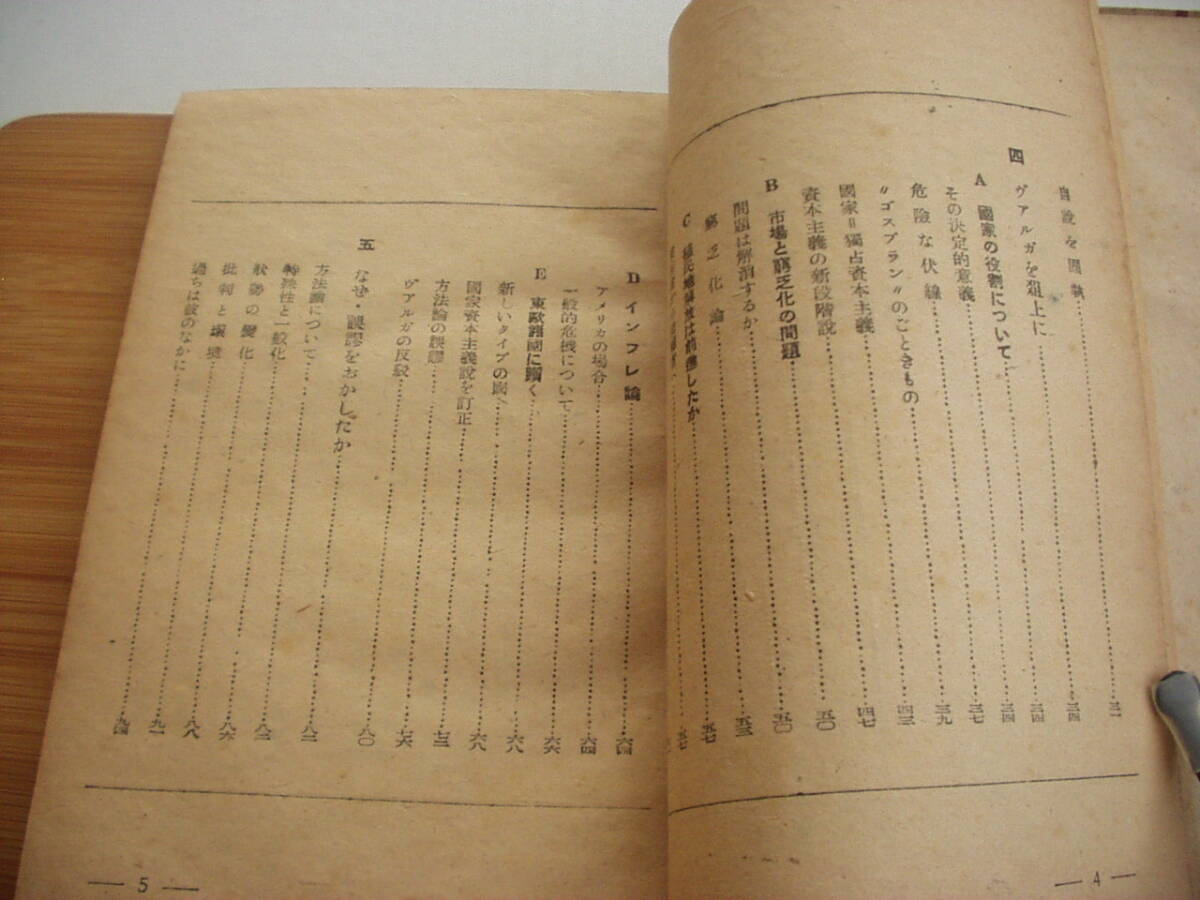 自説を固執……三一
四 ヴアルガを爼上に……三四
A 國家の役割について……三四
その決定的意義……三七
危險な伏線……三九
〃ゴスプラン〃のごときもの……四三
國家=獨占資本主義……四七
資本主義の新段階説……五〇
B 市場と窮乏化の問題……五〇
問題は解消するか……五三
窮乏化論……五七
C 植民地解放は前進したか……五七
— 4 —
D インフレ論……六四
アメリカの場合……六四
一般的危機について……六六
E 東歐諸國に躓く……六八
新しいタイプの國……六八
國家資本主義説を訂正……七三
方法論の誤謬……七六
ヴアルガの反駁……八〇
五 なぜ・誤謬をおかしたか……八二
方法論について……八二
特殊性と一般化……八六
狀勢の變化……八八
批判と環境……九一
過ちは彼のなかに……九四
— 5 —